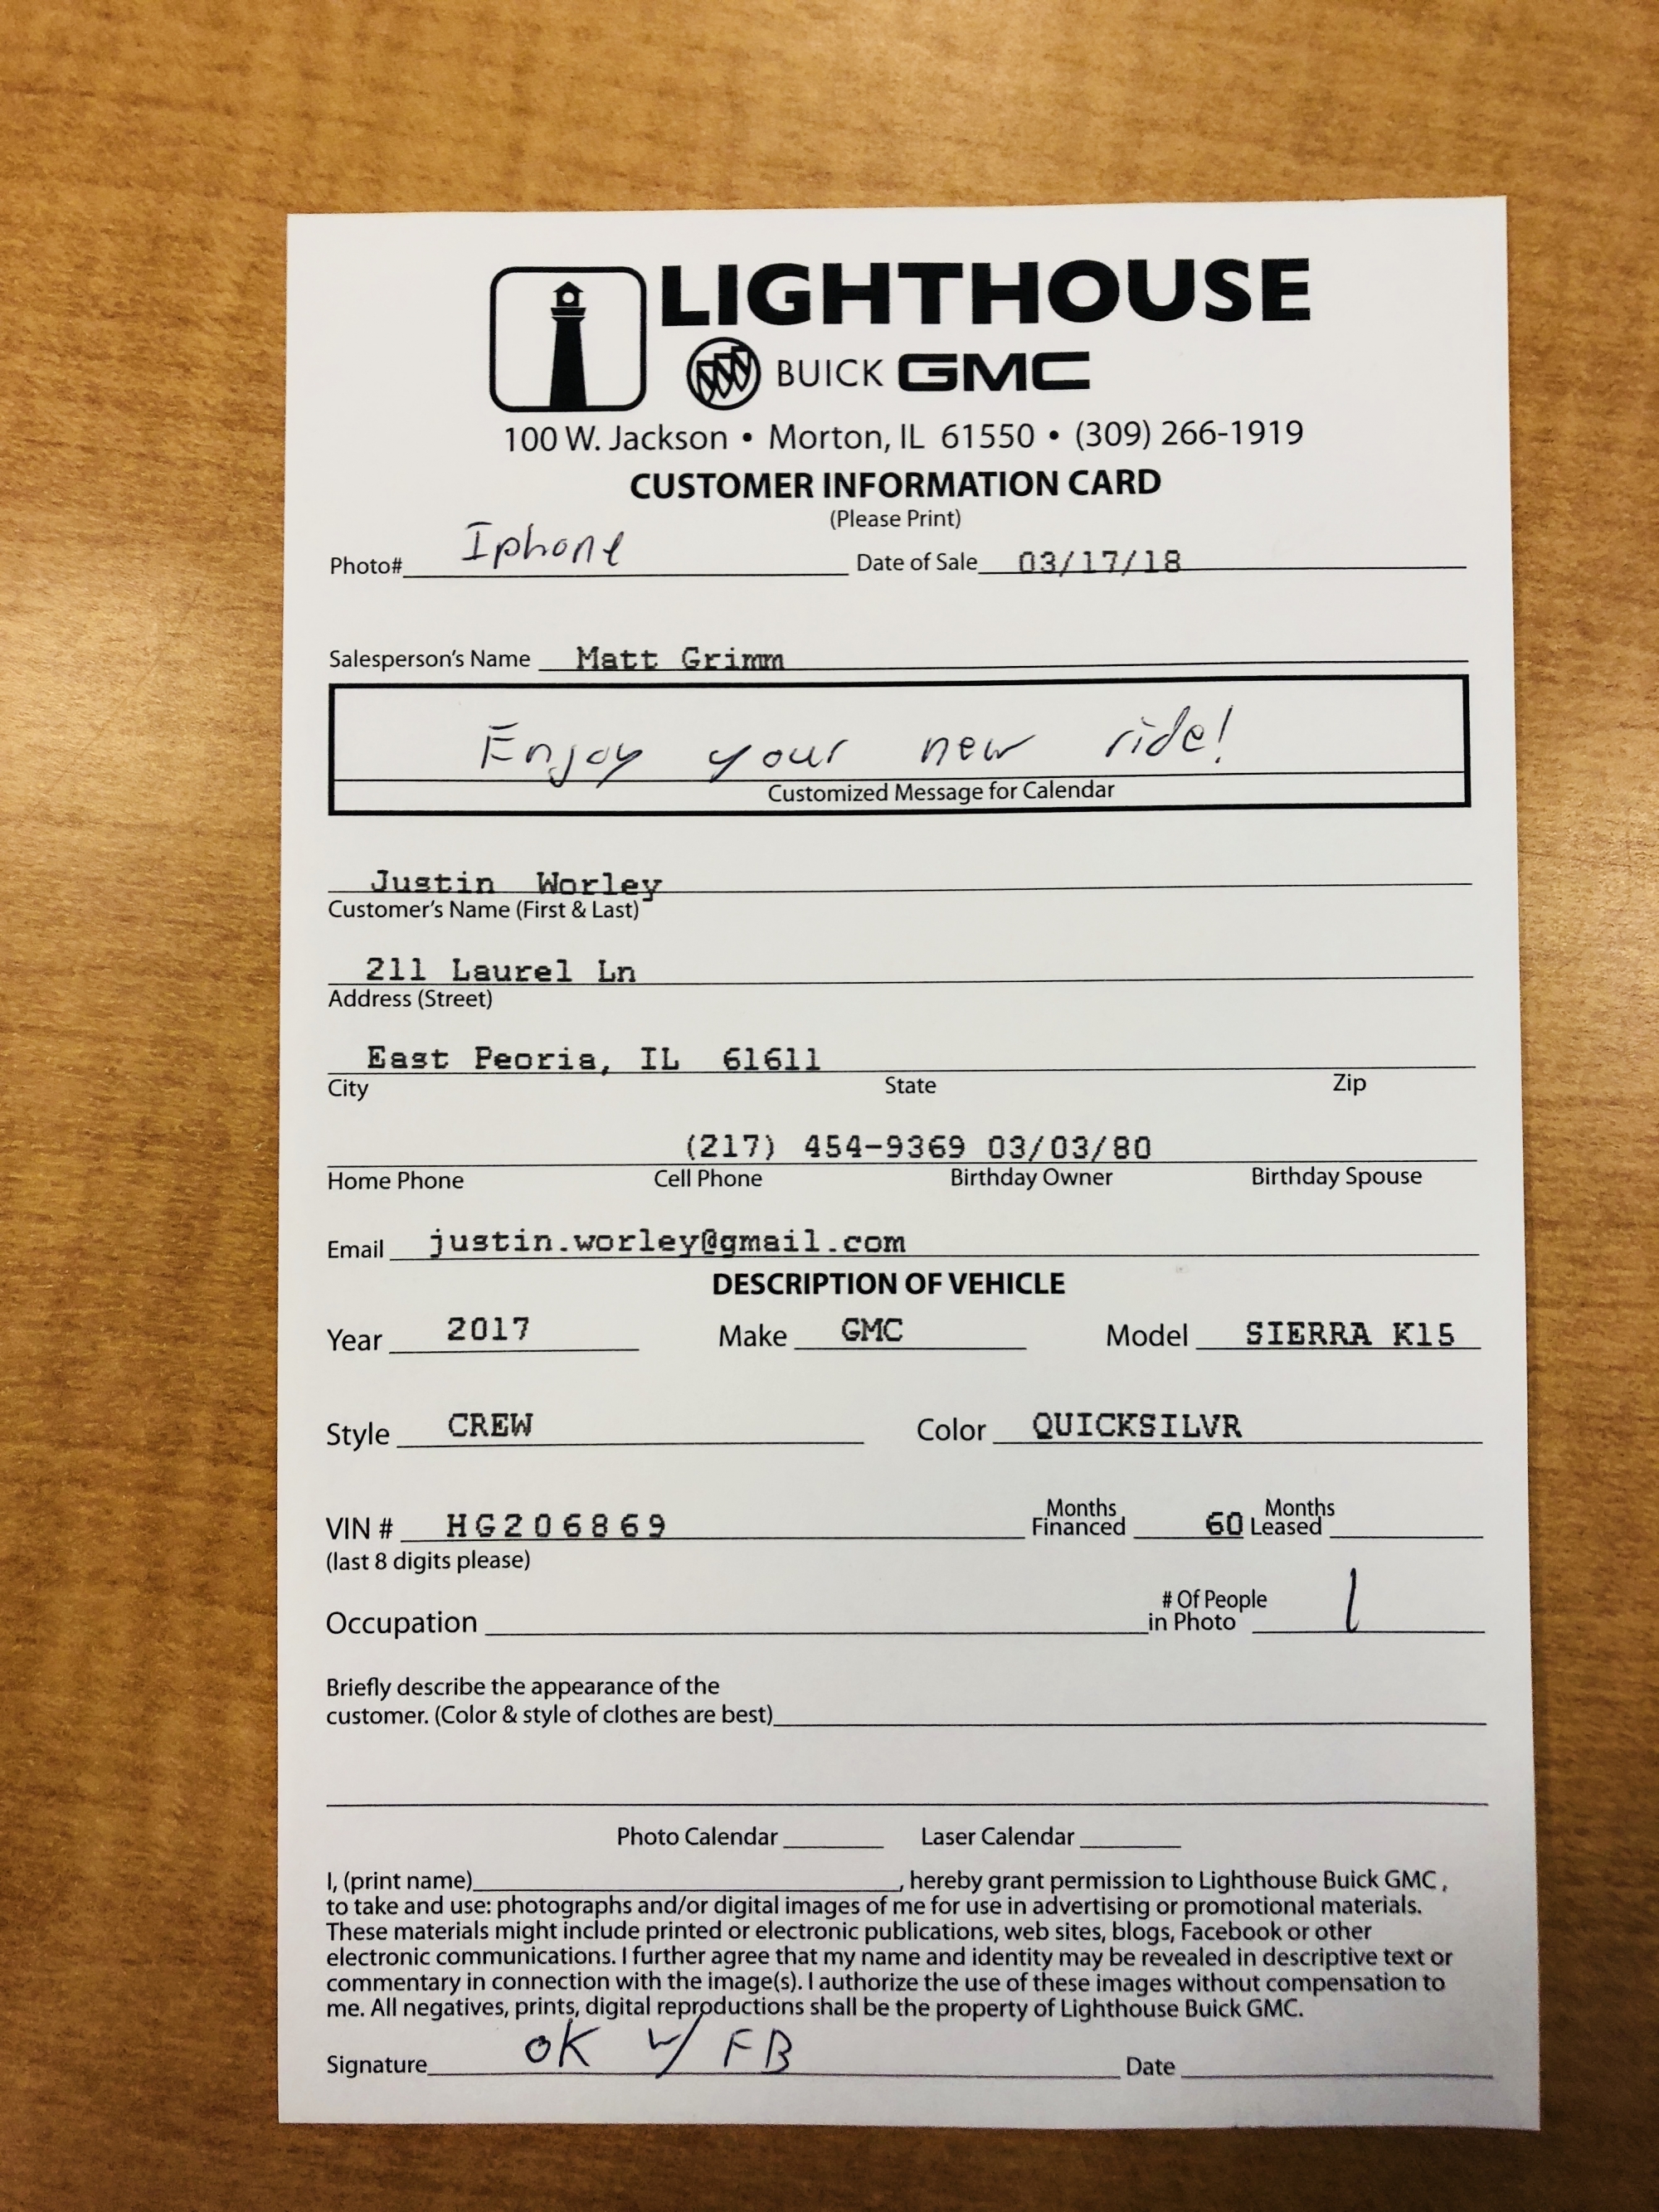 LIGHTHOUSE
BUICK GMC
100 W. Jackson • Morton, IL 61550 • (309) 266-1919
CUSTOMER INFORMATION CARD
(Please Print)
Photo# Iphone Date of Sale 03/17/18
Salesperson's Name Matt Grimm
Enjoy your new ride!
Customized Message for Calendar
Justin Worley
Customer's Name (First & Last)
211 Laurel Ln
Address (Street)
East Peoria, IL 61611
City State Zip
(217) 454-9369 03/03/80
Home Phone Cell Phone Birthday Owner Birthday Spouse
Email justin.worley@gmail.com
DESCRIPTION OF VEHICLE
Year 2017 Make GMC Model SIERRA K15
Style CREW Color QUICKSILVR
VIN # HG206869 Months Financed 60 Months Leased
(last 8 digits please)
Occupation # Of People in Photo 1
Briefly describe the appearance of the
customer. (Color & style of clothes are best)
Photo Calendar Laser Calendar
I, (print name) , hereby grant permission to Lighthouse Buick GMC ,
to take and use: photographs and/or digital images of me for use in advertising or promotional materials.
These materials might include printed or electronic publications, web sites, blogs, Facebook or other
electronic communications. I further agree that my name and identity may be revealed in descriptive text or
commentary in connection with the image(s). I authorize the use of these images without compensation to
me. All negatives, prints, digital reproductions shall be the property of Lighthouse Buick GMC.
Signature OK w/ FB Date